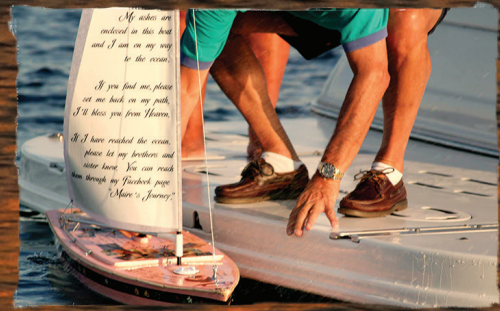 My ashes are
enclosed in this boat
and I am on my way
to the ocean.
If you find me, please
set me back on my path,
I'll bless you from Heaven.
If I have reached the ocean,
please let my brothers and
sister know. You can reach
them through my Facebook page
"Maire's Journey."